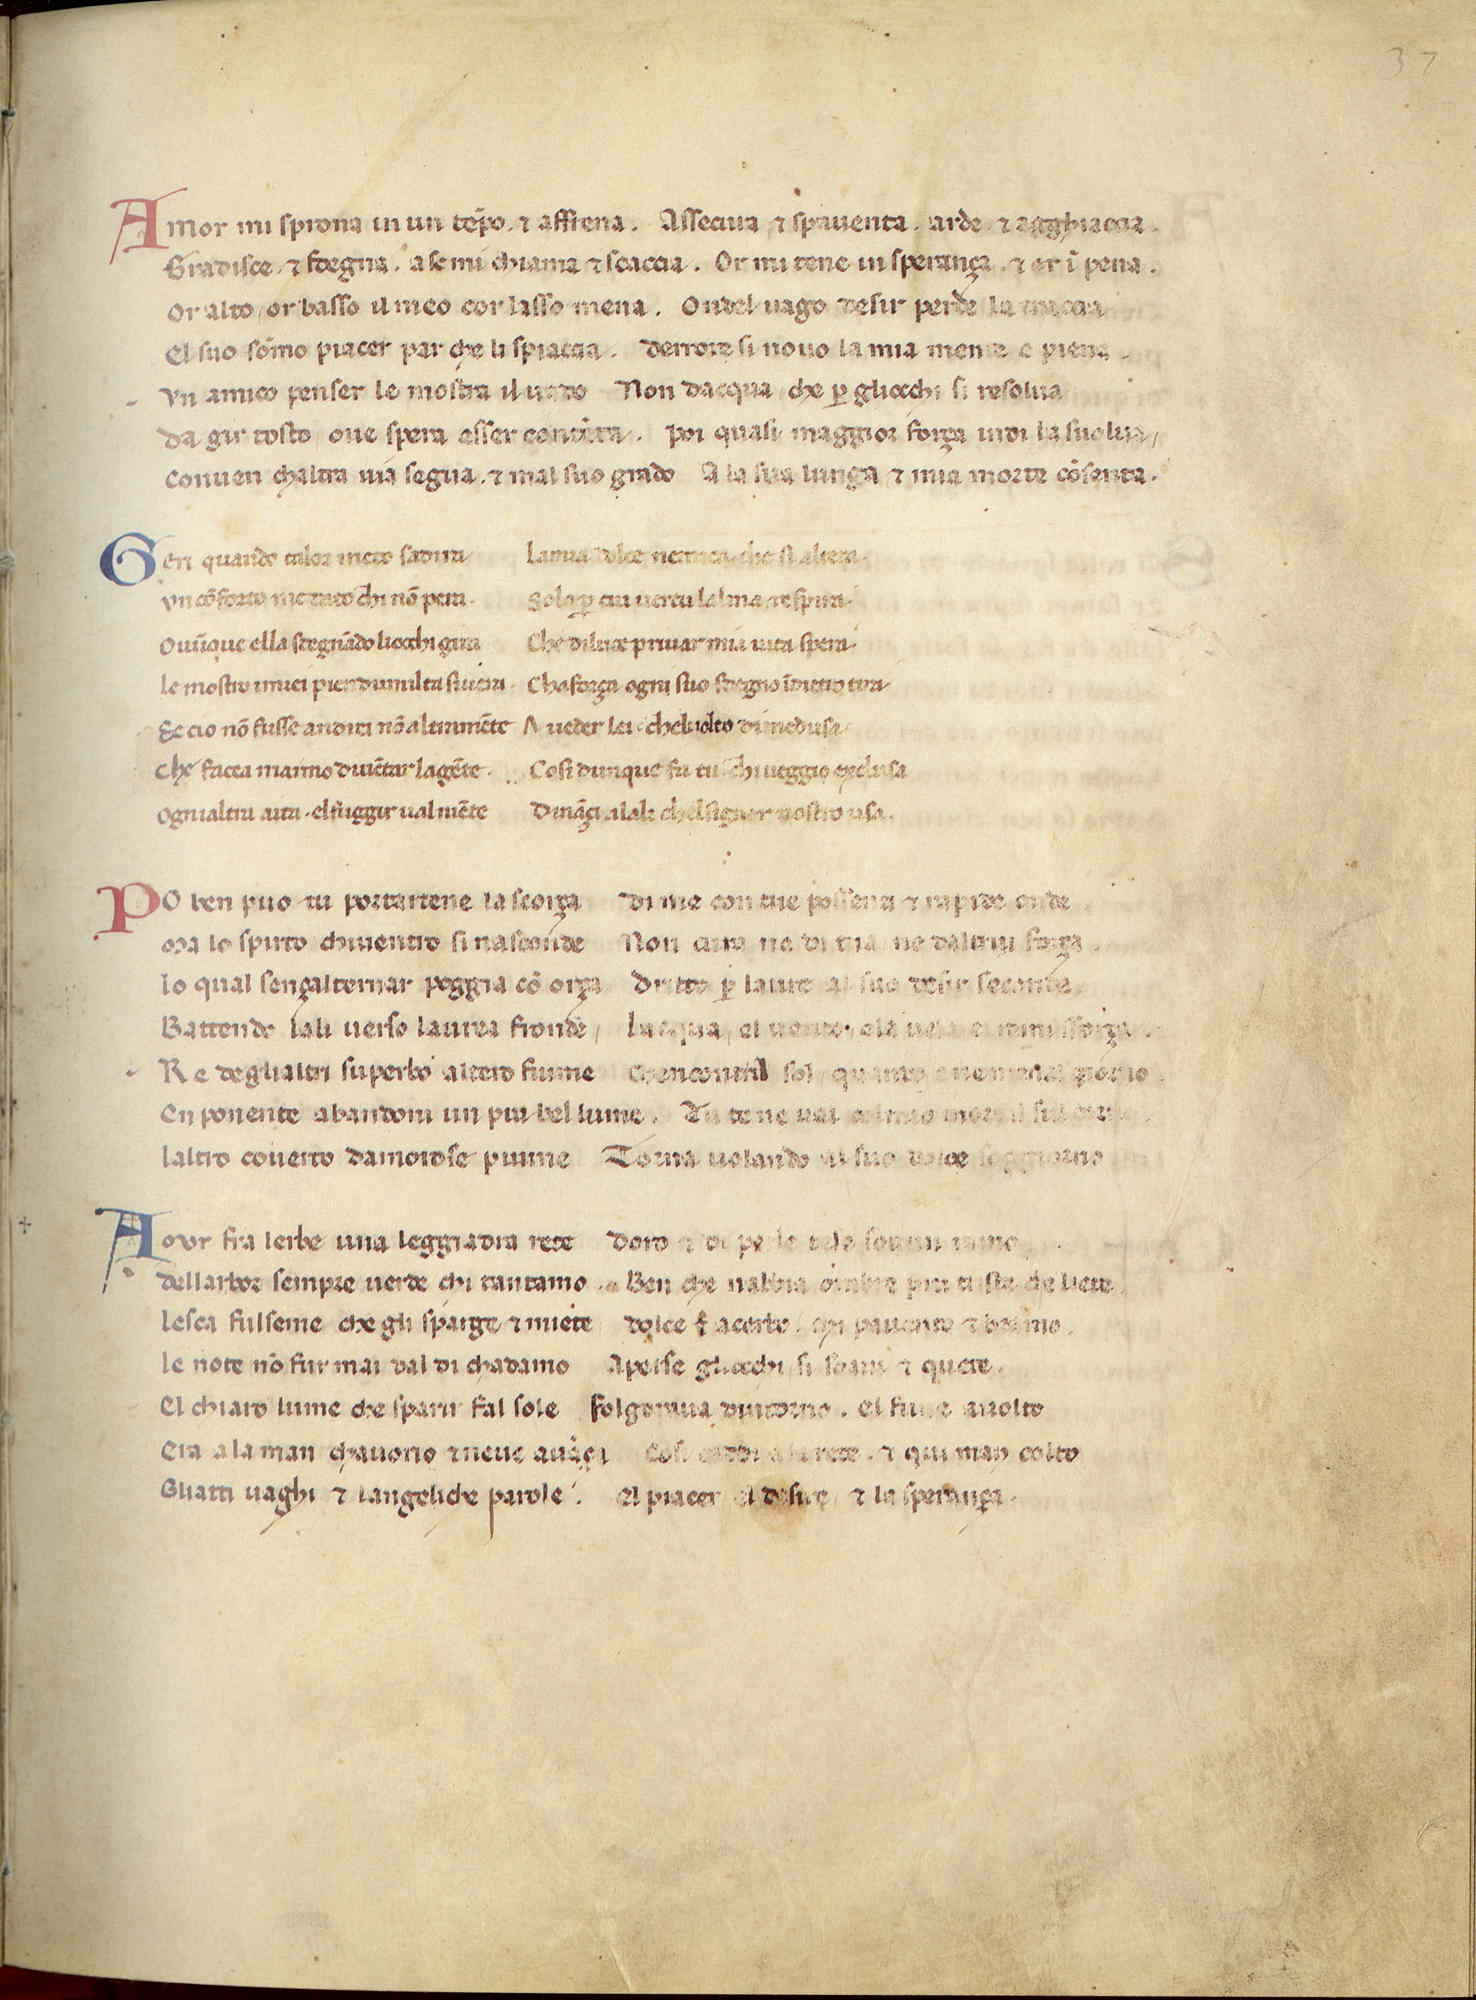 37
Amor mi sprona in un tēpo. ⁊ affrena. Assecura ⁊ spaventa. arde. ⁊ agghiaccia.
Gradisce. ⁊ sdegna. a se mi chiama ⁊ scaccia. Or mi tene in sperança. ⁊ or ī pena.
Or alto, or basso il meo cor lasso mena. Ondel vago desir perde la traccia
El suo sōmo piacer par che li spiaccia. derrore si novo la mia mente e piena.
Vn amico penser le mostra il vado Non dacqua che ꝑ gliocchi si resolva
da gir tosto ove spera esser contēta. poi quasi maggior forza indi la svolva,
conven chaltra via segua. ⁊ mal suo grado A la sua lunga ⁊ mia morte cōsenta.
Geri quando talor meco sadira la mia dolce nemica che si altera.
vn cōforto me dato chi nō pera. Solo ꝑ cui vertu lalma respira.
Ovūque ella sdegnādo liocchi gira Che di luce privar mia vita spera.
le mostro i miei pien dumilta si veri. Cha força ogni suo sdegno īdietro tira.
Se cio nō fusse andrei nō altrimēte A veder lei. chel volto di medusa.
che facea marmo diuētar la gēte. Cosi dunque fa tu. chi veggio exclusa
Ogni altra aita. el fuggir val niēte Dināçi a lali chel signor nostro usa.
PO ben puo tu portartene la scorza di me con tue possenti ⁊ rapide onde
Ma lo spirto chiventro si nasconde Non cura ne di tua ne daltrui forza.
lo qual senzalternar poggia cō orza dritto ꝑ laure al suo desir seconde
Battendo lali verso laurea fronde, lacqua, el vento. ⁊ la vela e i remi sforza.
Re deglialtri superbo altero fiume chencontril sol quando e ne mena giorno.
En ponente abandoni un piu bel lume. Tu te ne vai col mio mortal sul corno
laltro coverto damorose piume Torna volando al suo dolce soggiorno
Amor fra lerbe una leggiadra rete doro ⁊ di perle tese sottun ramo
dellarbor sempre verde chi tantamo. Ben che nabbia ombre piu triste che liete.
lesca fulseme che gli sparge ⁊ miete dolce ⁊ acerbo. chi pavento ⁊ bramo.
le note nō fur mai dal di chadamo Aperse gliocchi si soavi ⁊ quete.
El chiaro lume che sparir fal sole folgorava dintorno. el fune avolto
Era a la man chavorio ⁊ neve avāça Cosi caddi a la rete. ⁊ qui man colto
Gliatti vaghi ⁊ langeliche parole. el piacer el desire, ⁊ la speranza.